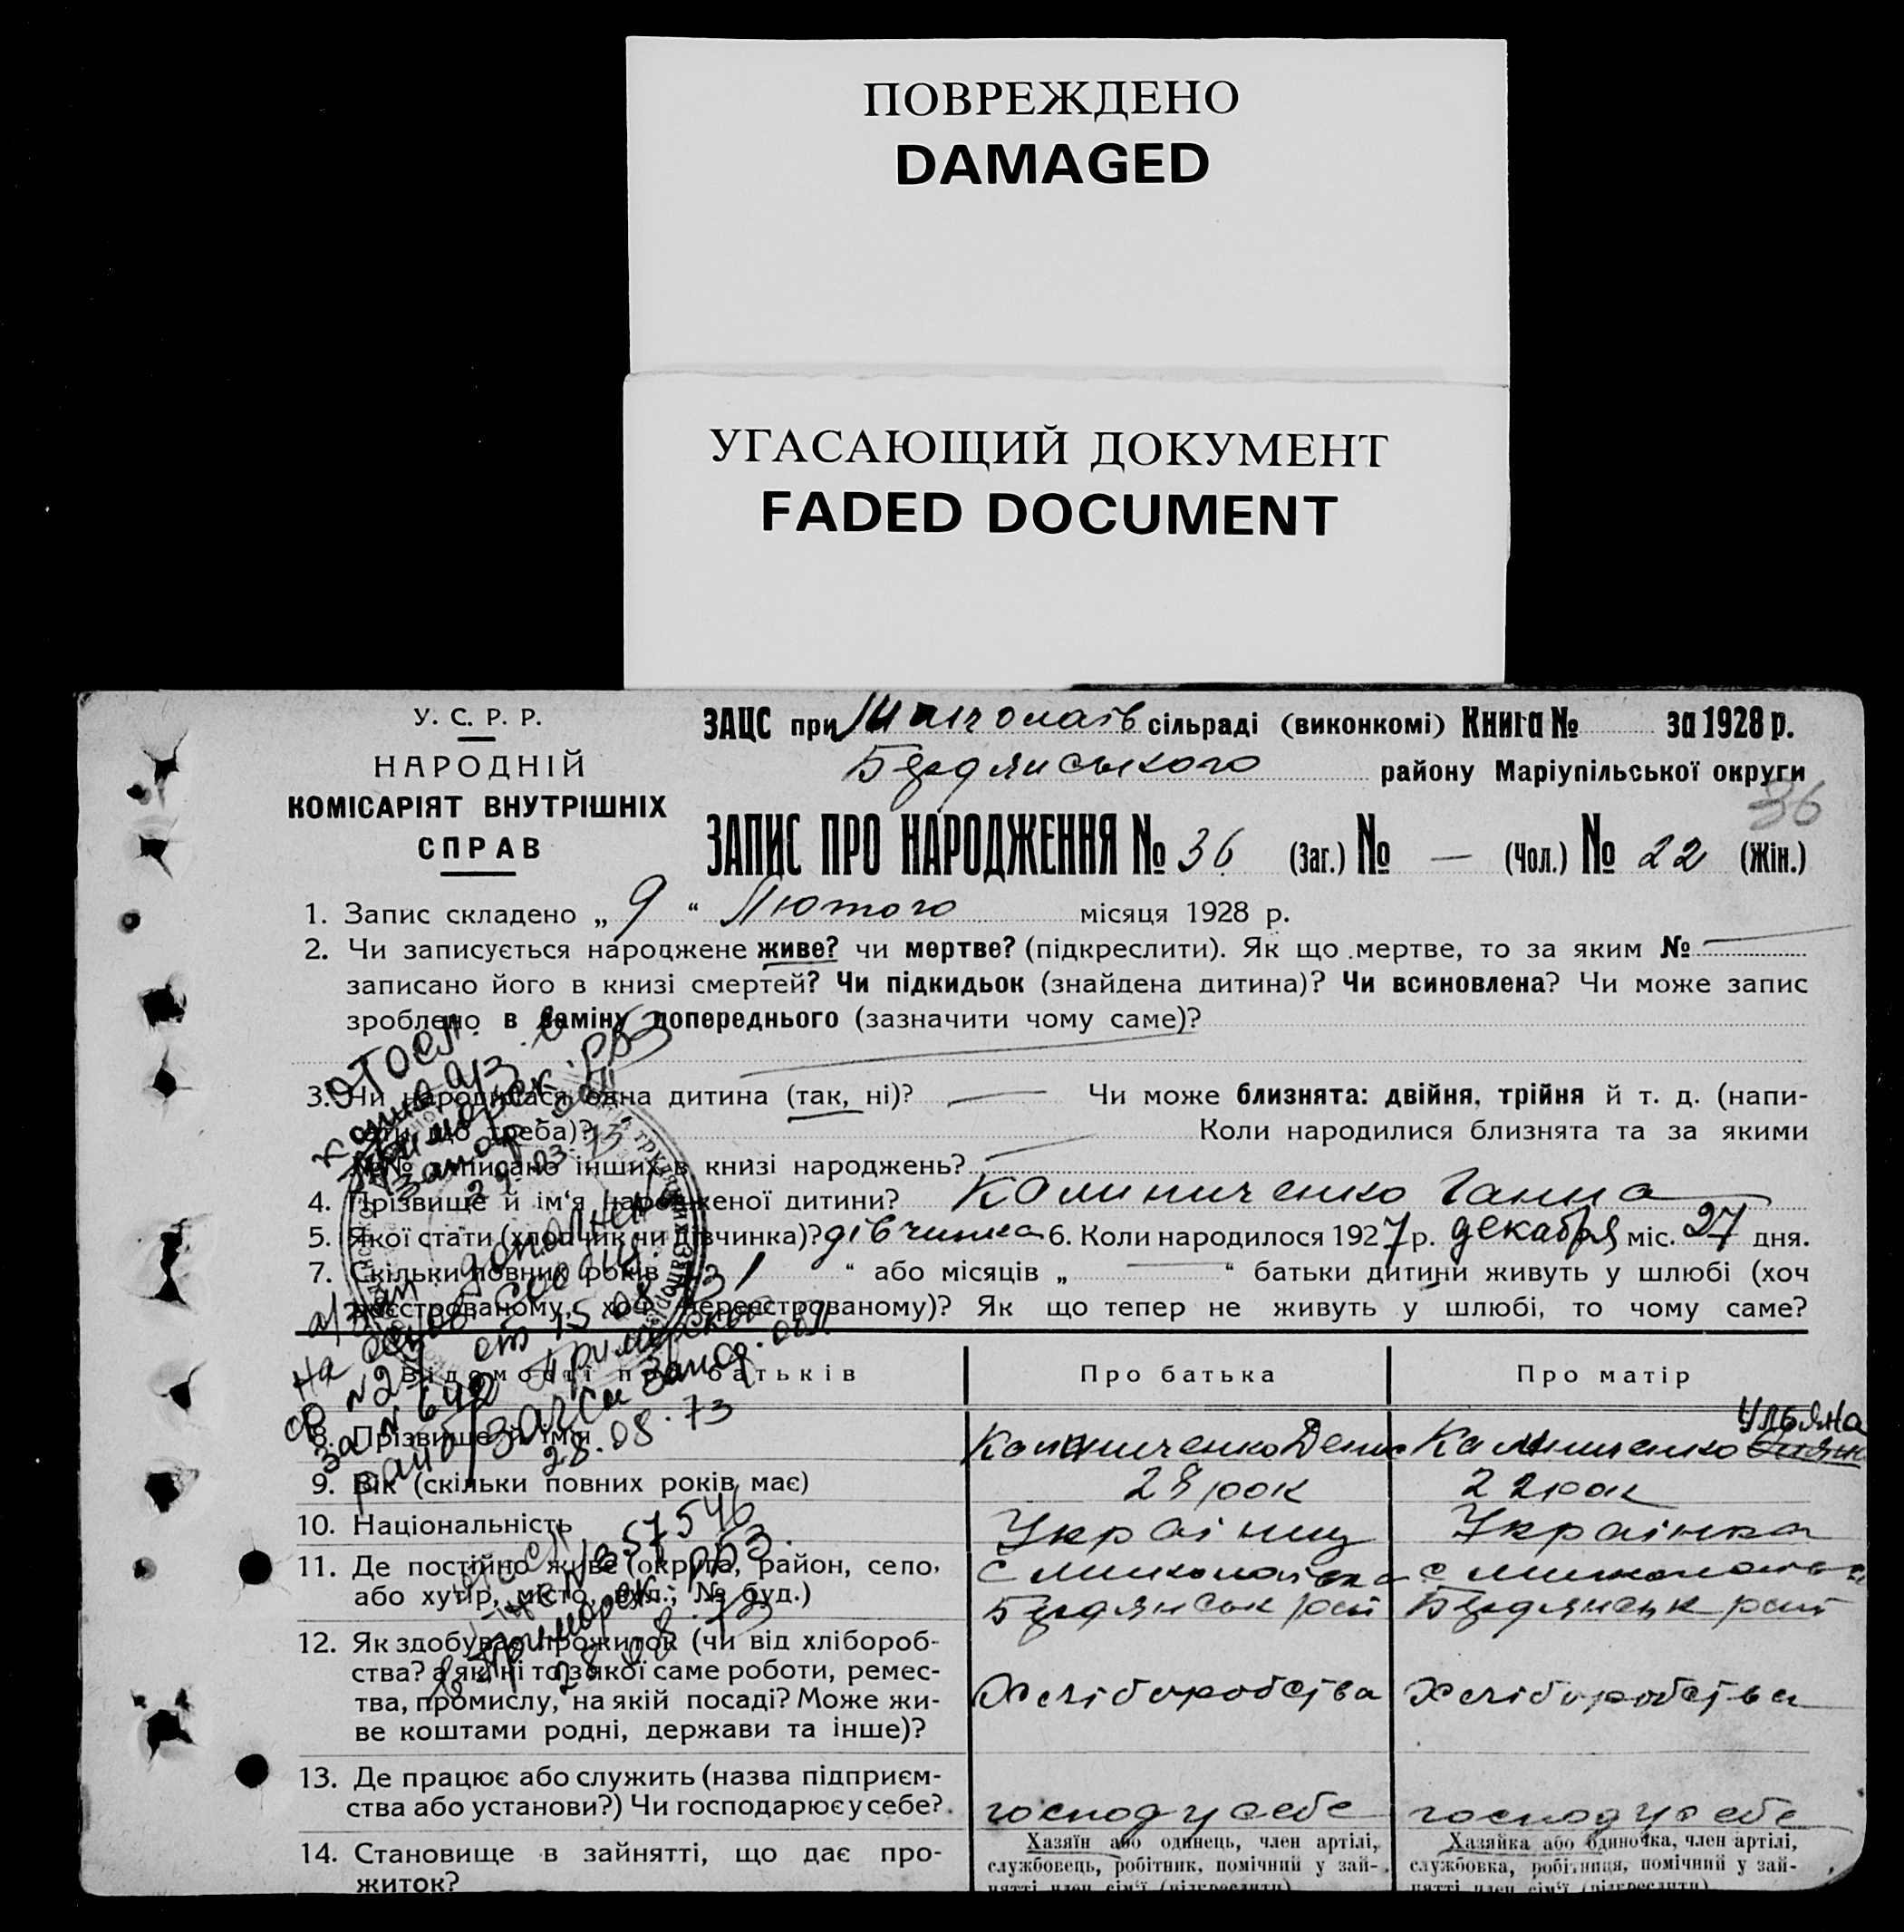 ПОВРЕЖДЕНО
DAMAGED
УГАСАЮЩИЙ ДОКУМЕНТ
FADED DOCUMENT
У. С. Р. Р.
НАРОДНІЙ
КОМІСАРІЯТ ВНУТРІШНІХ
СПРАВ
ЗАЦС при сільраді (виконкомі) Книга № за 1928 р.
Бердянського району Маріупільської округи
36
ЗАПИС ПРО НАРОДЖЕННЯ № 36 (Заг.) № — (Чол.) № 22 (Жін.)
1. Запис складено „ 9 “ Лютого місяця 1928 р.
2. Чи записується народжене живе? чи мертве? (підкреслити). Як що мертве, то за яким №
записано його в книзі смертей? Чи підкидьок (знайдена дитина)? Чи всиновлена? Чи може запис
зроблено в заміну попереднього (зазначити чому саме)?
3. Чи народилася одна дитина (так, ні)? — Чи може близнята: двійня, трійня й т. д. (напи-
сати що треба)? Коли народилися близнята та за якими
№№ записано інших в книзі народжень?
4. Прізвище й ім‘я народженої дитини? Калиниченко Ганна
5. Якої стати (хлопчик чи дівчинка)? дівчинка 6. Коли народилося 1927 р. декабря міс. 27 дня.
7. Скільки повних років 1 “ або місяців „ — “ батьки дитини живуть у шлюбі (хоч
реєстрованому, хоч нереєстрованому)? Як що тепер не живуть у шлюбі, то чому саме?
Відомості про батьків Про батька Про матір
Ульяна
8. Прізвище й ім‘я Калиниченко Денис Калиниченко
9. Вік (скільки повних років має) 28 рок 22 рок
10. Національність Українц Українка
11. Де постійно живе (округа, район, село, с Миколаївка с Миколаївка
або хутір, місто, вул., № буд.) Бердянськ рай Бердянськ рай
12. Як здобуває прожиток (чи від хлібороб-
ства? а як ні то з якої саме роботи, ремес-
тва, промислу, на якій посаді? Може жи- Хліборобства Хліборобства
ве коштами родні, держави та інше)?
13. Де працює або служить (назва підприєм-
ства або установи?) Чи господарює у себе? господ у себе господ у себе
14. Становище в зайнятті, що дає про-
житок?
Хазяїн або одинець, член артілі,
службовець, робітник, помічний у зай-
нятті член сім‘ї (підкреслити)
Хазяйка або одиночка, член артілі,
службовка, робітниця, помічний у зай-
нятті член сім‘ї (підкреслити)
28.08.73